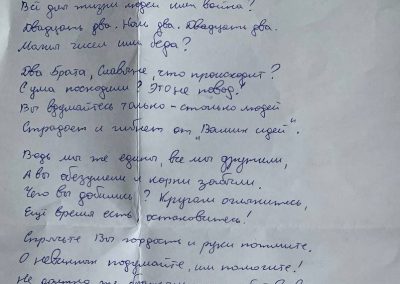 Всё для жизни людей или война?
Двадцать два. Нам два. Двадцать два.
Магия чисел или беда?
Два брата, Славяне, что происходит?
С ума посходили? Это не повод!
Вы вдумайтесь только – столько людей
Страдает и гибнет от "Ваших идей".
Ведь мы же едины, все мы дружили,
А вы обезумели и корни забыли.
Чего вы добились? Кругом оглянитесь,
Ещё время есть, остановитесь!
Спрячьте Вы гордость и руки пожмите.
О невинных подумайте, им помогите!
Не должно же